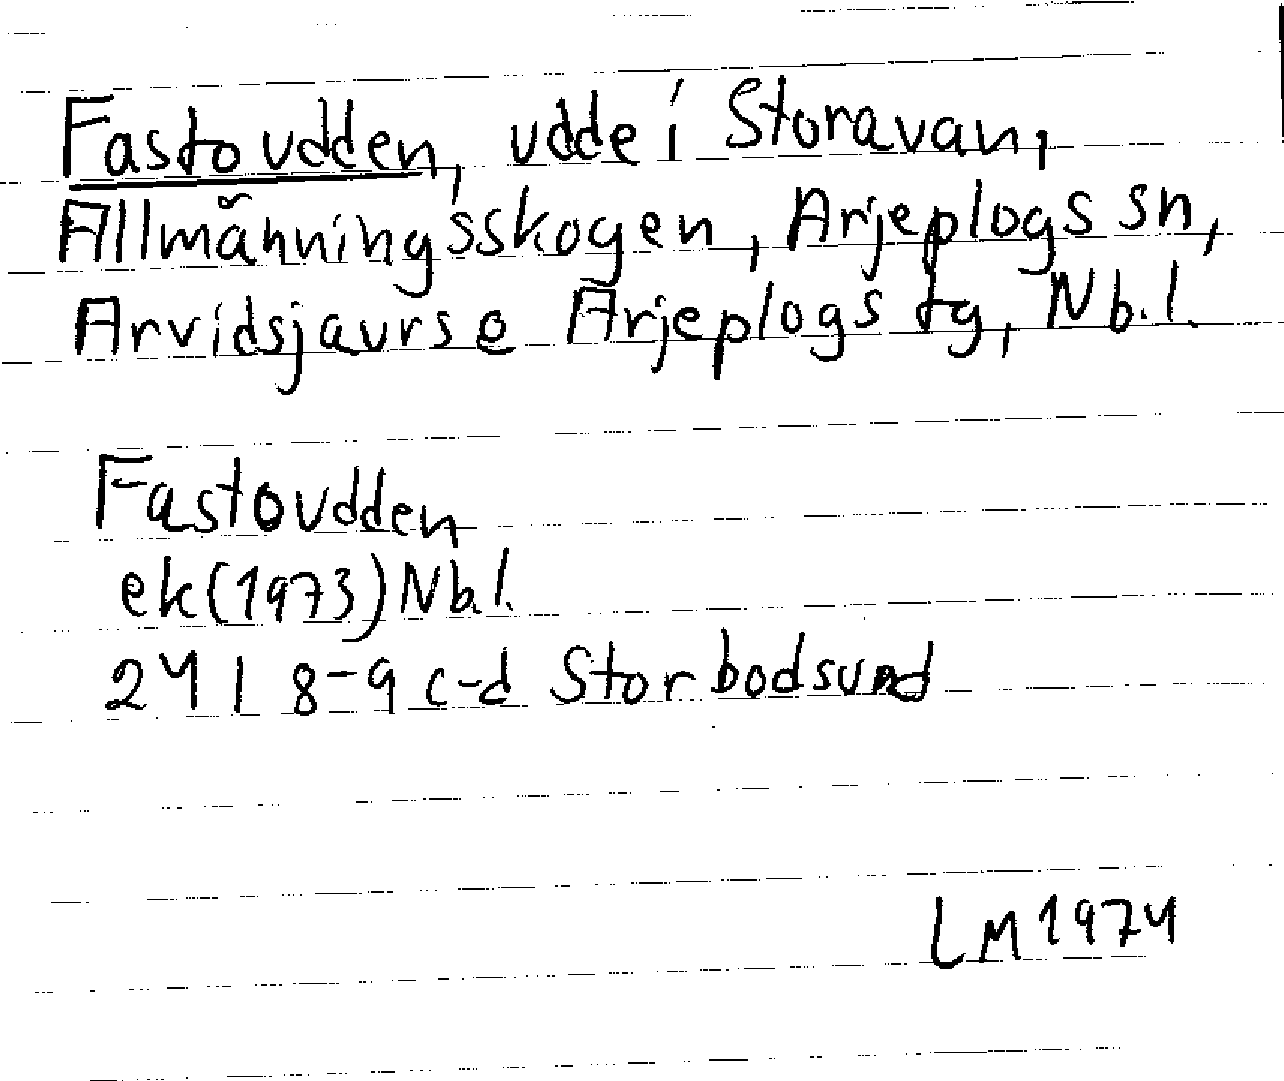 Fastoudden, udde i Storavan,
Allmänningsskogen, Arjeplogs sn,
Arvidsjaurs o Arjeplogs tg, Nb.l.
Fastoudden
ek (1973) Nb.l.
24 I 8-9 c-d Storbodsund
LM 1974